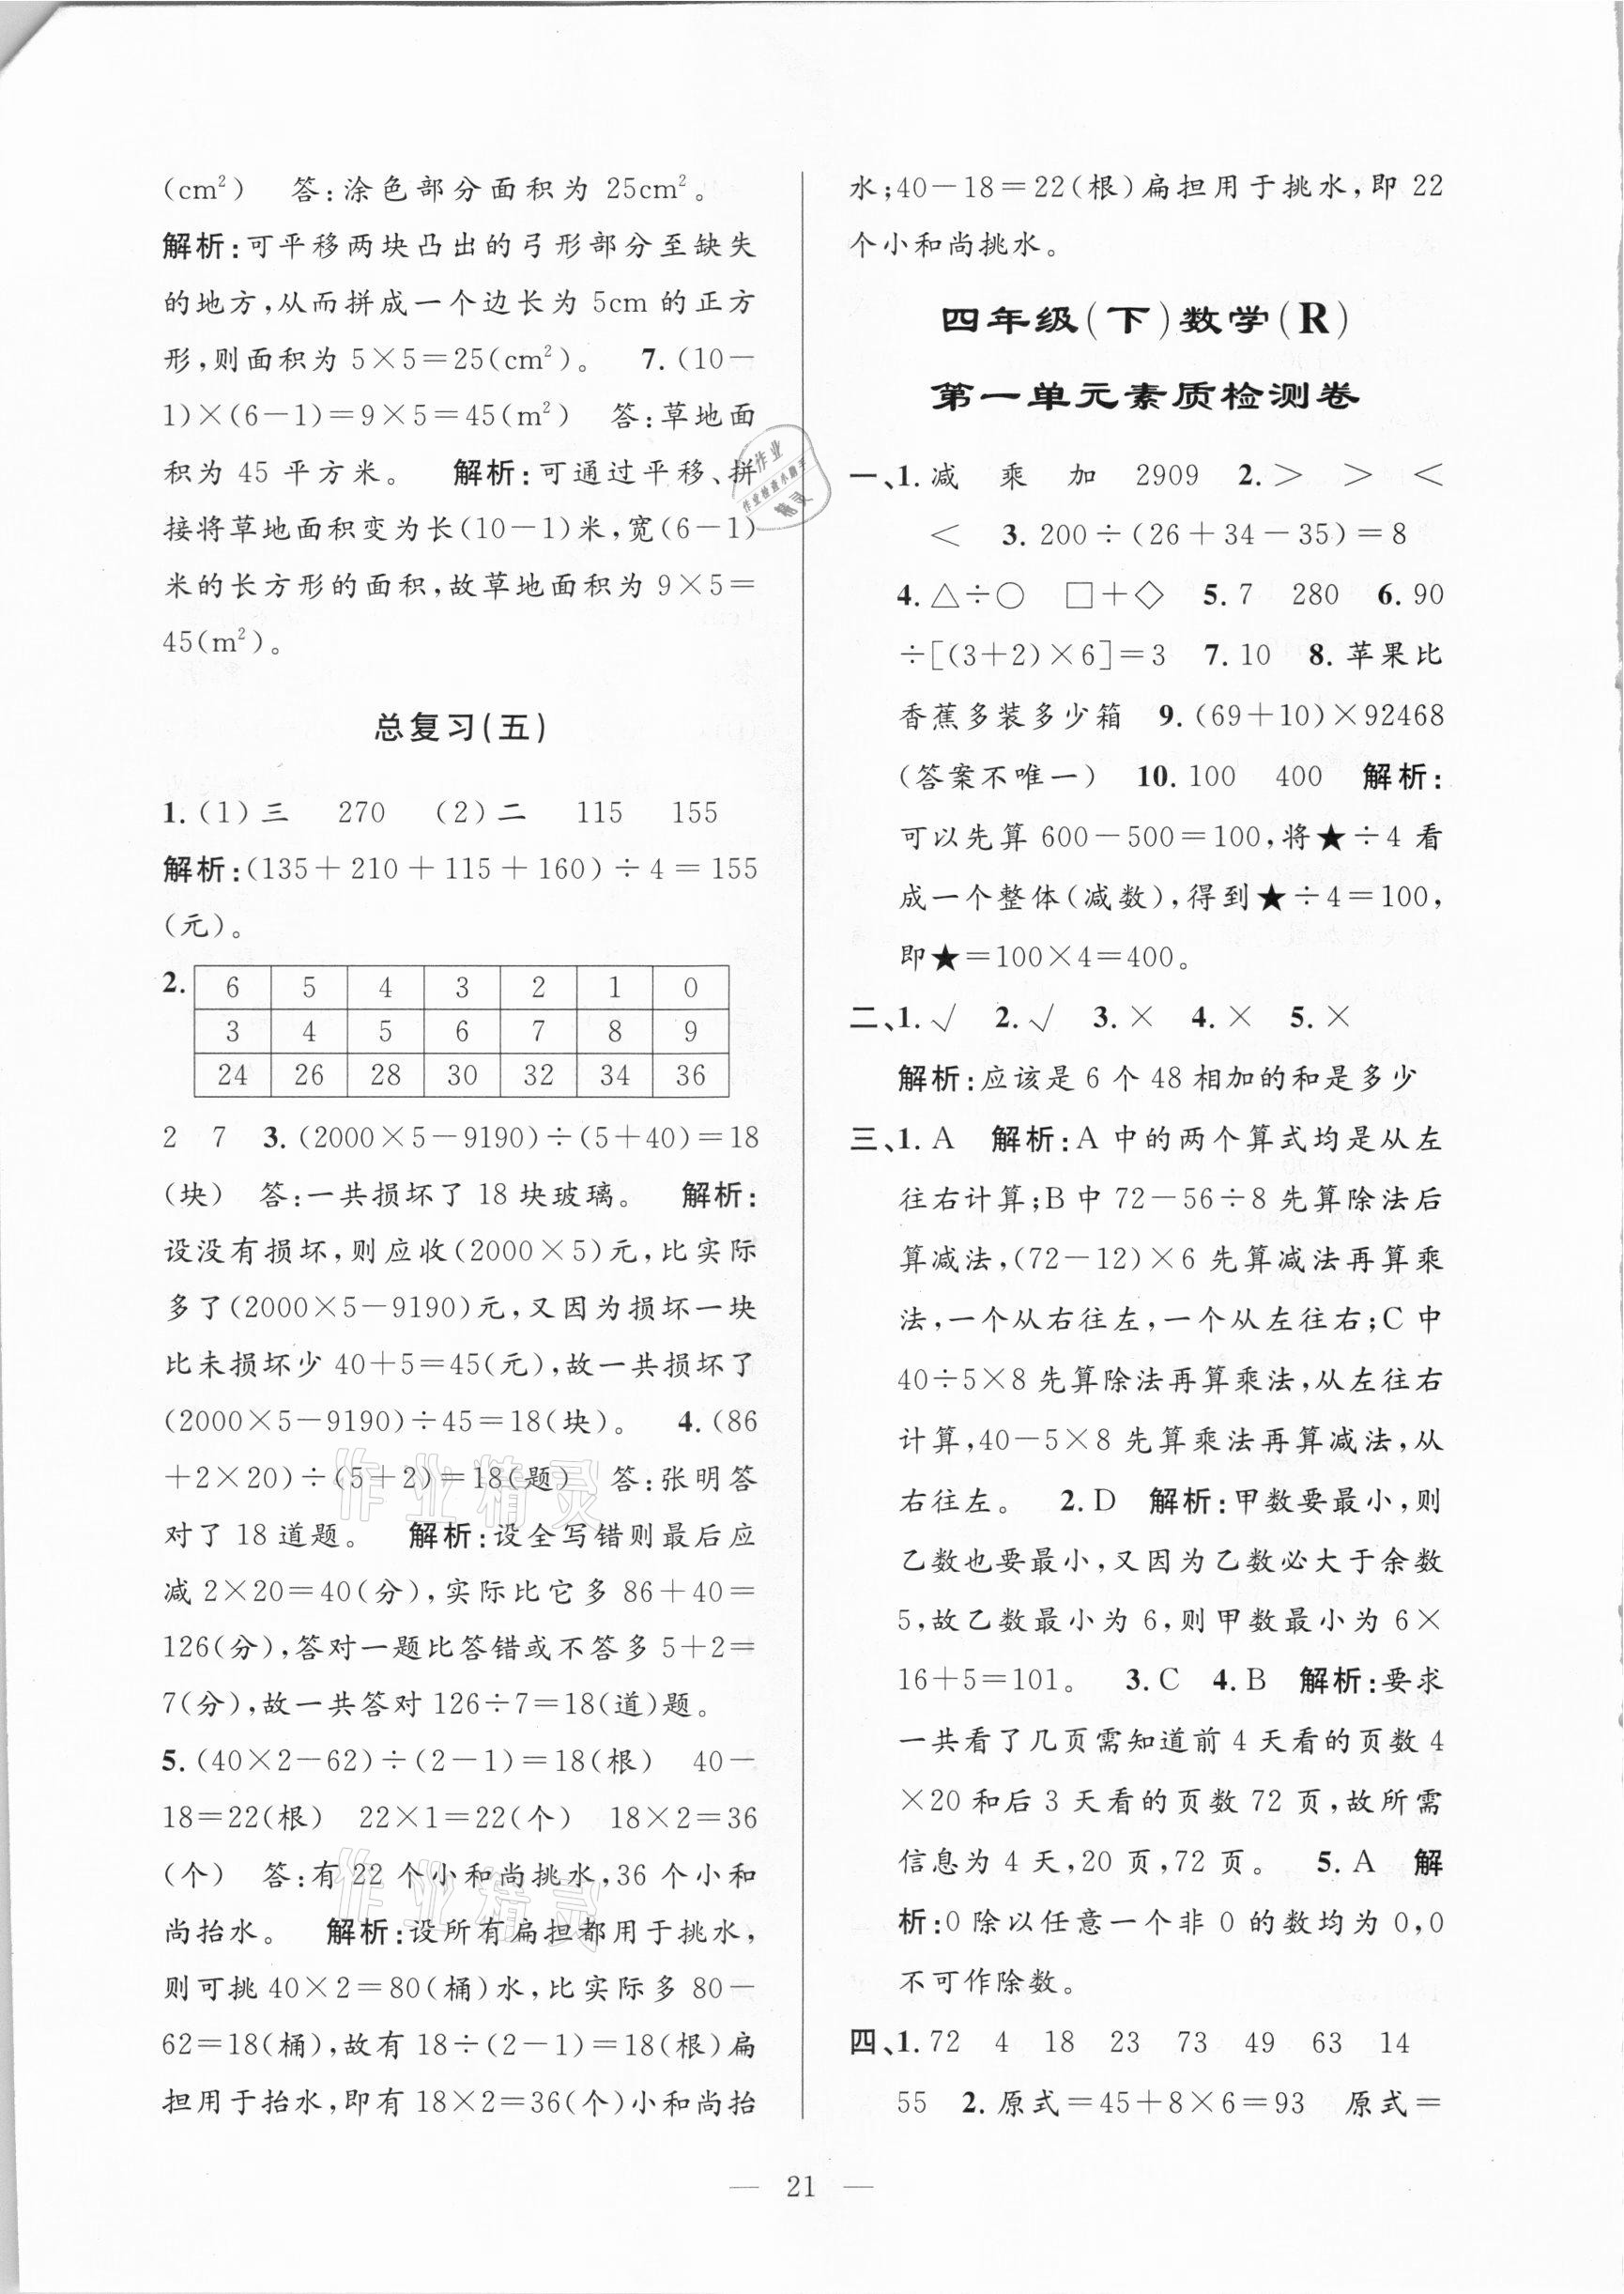 (cm²)　答:涂色部分面积为 25cm²。
解析:可平移两块凸出的弓形部分至缺失
的地方,从而拼成一个边长为 5cm 的正方
形,则面积为 5×5=25(cm²)。　7.(10-
1)×(6-1)=9×5=45(m²)　答:草地面
积为 45 平方米。　解析:可通过平移、拼
接将草地面积变为长(10-1)米,宽(6-1)
米的长方形的面积,故草地面积为 9×5=
45(m²)。
总复习(五)
1.(1)三　270　(2)二　115　155
解析:(135+210+115+160)÷4=155
(元)。
2. 6 5 4 3 2 1 0
3 4 5 6 7 8 9
24 26 28 30 32 34 36
2　7　3.(2000×5-9190)÷(5+40)=18
(块)　答:一共损坏了 18 块玻璃。　解析:
设没有损坏,则应收(2000×5)元,比实际
多了(2000×5-9190)元,又因为损坏一块
比未损坏少 40+5=45(元),故一共损坏了
(2000×5-9190)÷45=18(块)。　4.(86
+2×20)÷(5+2)=18(题)　答:张明答
对了 18 道题。　解析:设全写错则最后应
减 2×20=40(分),实际比它多 86+40=
126(分),答对一题比答错或不答多 5+2=
7(分),故一共答对 126÷7=18(道)题。
5.(40×2-62)÷(2-1)=18(根)　40-
18=22(根)　22×1=22(个)　18×2=36
(个)　答:有 22 个小和尚挑水,36 个小和
尚抬水。　解析:设所有扁担都用于挑水,
则可挑 40×2=80(桶)水,比实际多 80-
62=18(桶),故有 18÷(2-1)=18(根)扁
担用于抬水,即有 18×2=36(个)小和尚抬
水;40-18=22(根)扁担用于挑水,即 22
个小和尚挑水。
四年级(下)数学(R)
第一单元素质检测卷
一、1.减　乘　加　2909　2.>　>　<
<　3.200÷(26+34-35)=8
4.△÷○　□+◇　5.7　280　6.90
÷[(3+2)×6]=3　7.10　8.苹果比
香蕉多装多少箱　9.(69+10)×92468
(答案不唯一)　10.100　400　解析:
可以先算 600-500=100,将★÷4 看
成一个整体(减数),得到★÷4=100,
即★=100×4=400。
二、1.√　2.√　3.×　4.×　5.×
解析:应该是 6 个 48 相加的和是多少
三、1.A　解析:A 中的两个算式均是从左
往右计算;B 中 72-56÷8 先算除法后
算减法,(72-12)×6 先算减法再算乘
法,一个从右往左,一个从左往右;C 中
40÷5×8 先算除法再算乘法,从左往右
计算,40-5×8 先算乘法再算减法,从
右往左。　2.D　解析:甲数要最小,则
乙数也要最小,又因为乙数必大于余数
5,故乙数最小为 6,则甲数最小为 6×
16+5=101。　3.C　4.B　解析:要求
一共看了几页需知道前 4 天看的页数 4
×20 和后 3 天看的页数 72 页,故所需
信息为 4 天,20 页,72 页。　5.A　解
析:0 除以任意一个非 0 的数均为 0,0
不可作除数。
四、1.72　4　18　23　73　49　63　14
55　2.原式=45+8×6=93　原式=
— 21 —
作业
作业检查小助手
精灵
作业精灵
作业精灵